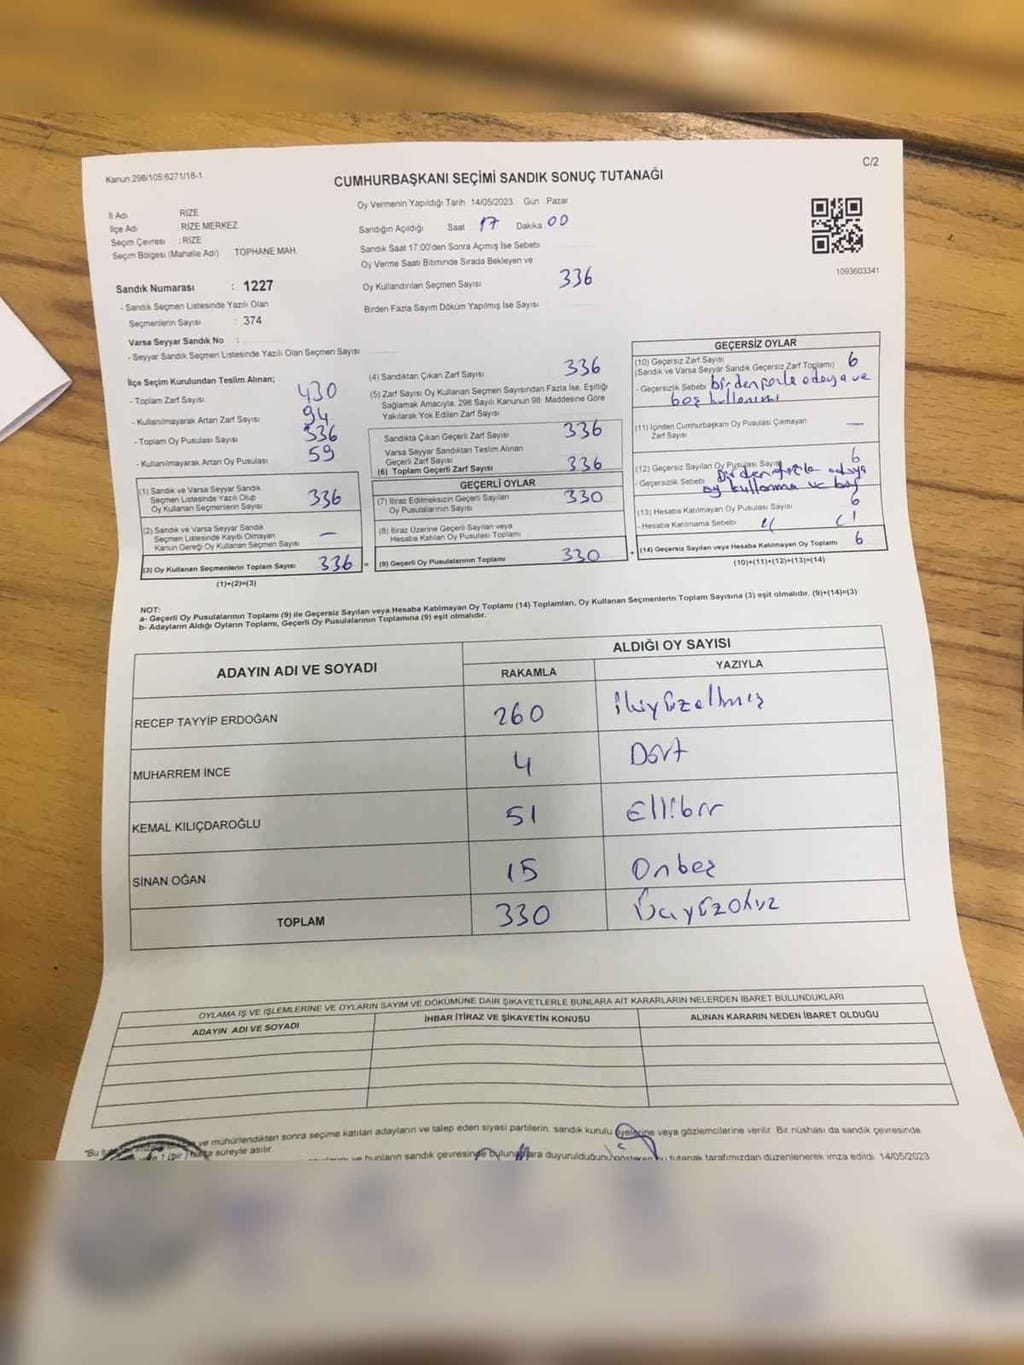 Kanun:298/105;6271/18-1
C/2
CUMHURBAŞKANI SEÇİMİ SANDIK SONUÇ TUTANAĞI
İl Adı RİZE
İlçe Adı RİZE MERKEZ
Seçim Çevresi : RİZE
Seçim Bölgesi (Mahalle Adı) TOPHANE MAH.
Sandık Numarası : 1227
- Sandık Seçmen Listesinde Yazılı Olan
Seçmenlerin Sayısı : 374
Varsa Seyyar Sandık No :
- Seyyar Sandık Seçmen Listesinde Yazılı Olan Seçmen Sayısı
Oy Vermenin Yapıldığı Tarih 14/05/2023 Gün Pazar
Sandığın Açıldığı Saat 17 Dakika 00
Sandık Saat 17:00'den Sonra Açımış İse Sebebi
Oy Verme Saati Bitiminde Sırada Bekleyen ve
Oy Kullandırılan Seçmen Sayısı 336
Birden Fazla Sayım Döküm Yapılmış İse Sayısı
1093603341
İlçe Seçim Kurulundan Teslim Alınan;
- Toplam Zarf Sayısı 430
- Kullanılmayarak Artan Zarf Sayısı 94
- Toplam Oy Pusulası Sayısı 336
- Kullanılmayarak Artan Oy Pusulası 59
(1) Sandık ve Varsa Seyyar Sandık
Seçmen Listesinde Yazılı Olup
Oy Kullanan Seçmenlerin Sayısı 336
(2) Sandık ve Varsa Seyyar Sandık
Seçmen Listesinde Kaydı Olmayan
Kanun Gereği Oy Kullanan Seçmen Sayısı –
(3) Oy Kullanan Seçmenlerin Toplam Sayısı 336 =
(1)+(2)=(3)
(4) Sandıktan Çıkan Zarf Sayısı 336
(5) Zarf Sayısı Oy Kullanan Seçmen Sayısından Fazla İse, Eşitliği
Sağlamak Amacıyla, 298 Sayılı Kanunun 98. Maddesine Göre
Yakılarak Yok Edilen Zarf Sayısı
Sandıkta Çıkan Geçerli Zarf Sayısı 336
Varsa Seyyar Sandıktan Teslim Alınan
Geçerli Zarf Sayısı
(6) Toplam Geçerli Zarf Sayısı 336
GEÇERLİ OYLAR
(7) İtiraz Edilmeksizin Geçerli Sayılan
Oy Pusulalarının Sayısı 330
(8) İtiraz Üzerine Geçerli Sayılan veya
Hesaba Katılan Oy Pusulası Toplamı
(9) Geçerli Oy Pusulalarının Toplamı 330 +
GEÇERSİZ OYLAR
(10) Geçersiz Zarf Sayısı
(Sandık ve Varsa Seyyar Sandık Geçersiz Zarf Toplamı) 6
- Geçersizlik Sebebi birden adaya ve
boş kullanımı
(11) İçinden Cumhurbaşkanı Oy Pusulası Çıkmayan
Zarf Sayısı —
(12) Geçersiz Sayılan Oy Pusulası Sayısı 6
- Geçersizlik Sebebi Birden fazla adaya
oy kullanma ve boş
(13) Hesaba Katılmayan Oy Pusulası Sayısı 6
- Hesaba Katılmama Sebebi
(14) Geçersiz Sayılan veya Hesaba Katılmayan Oy Toplamı 6
(10)+(11)+(12)+(13)=(14)
NOT:
a- Geçerli Oy Pusulalarının Toplamı (9) ile Geçersiz Sayılan veya Hesaba Katılmayan Oy Toplamı (14) Toplamları, Oy Kullanan Seçmenlerin Toplam Sayısına (3) eşit olmalıdır. (9)+(14)=(3)
b- Adayların Aldığı Oyların Toplamı, Geçerli Oy Pusulalarının Toplamına (9) eşit olmalıdır.
ADAYIN ADI VE SOYADI
ALDIĞI OY SAYISI
RAKAMLA YAZIYLA
RECEP TAYYİP ERDOĞAN 260 ikiyüzaltmış
MUHARREM İNCE 4 Dört
KEMAL KILIÇDAROĞLU 51 Ellibir
SİNAN OĞAN 15 Onbeş
TOPLAM 330 Üçyüzotuz
OYLAMA İŞ VE İŞLEMLERİNE VE OYLARIN SAYIM VE DÖKÜMÜNE DAİR ŞİKAYETLERLE BUNLARA AİT KARARLARIN NELERDEN İBARET BULUNDUKLARI
ADAYIN ADI VE SOYADI İHBAR İTİRAZ VE ŞİKAYETİN KONUSU ALINAN KARARIN NEDEN İBARET OLDUĞU
"Bu ve mühürlendikten sonra seçime katılan adayların ve talep eden siyasi partilerin, sandık kurulu üyelerine veya gözlemcilerine verilir. Bir nüshası da sandık çevresinde
1 (bir) hafta süreyle asılır.
ve bunların sandık çevresinde bulunanlara duyurulduğunu gösteren bu tutanak tarafımızdan düzenlenerek imza edildi. 14/05/2023